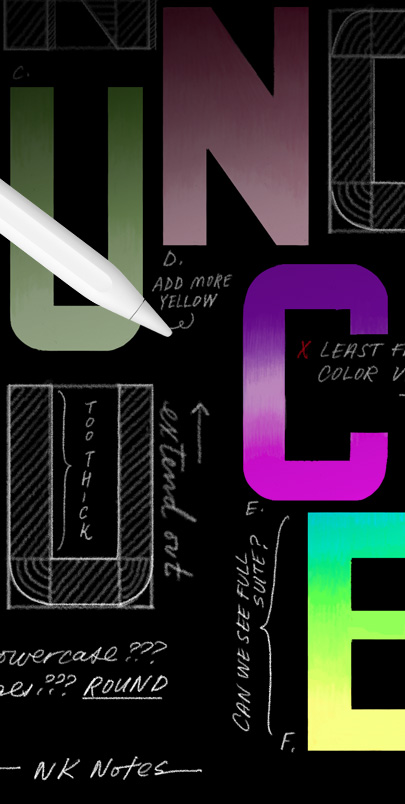 C.
U
N
D.
ADD MORE
YELLOW
C
X LEAST
COLOR
TOO THICK
extend out
U
E.
CAN WE SEE FULL
SUITE?
E
F.
owercase ???
??? ROUND
NK Notes